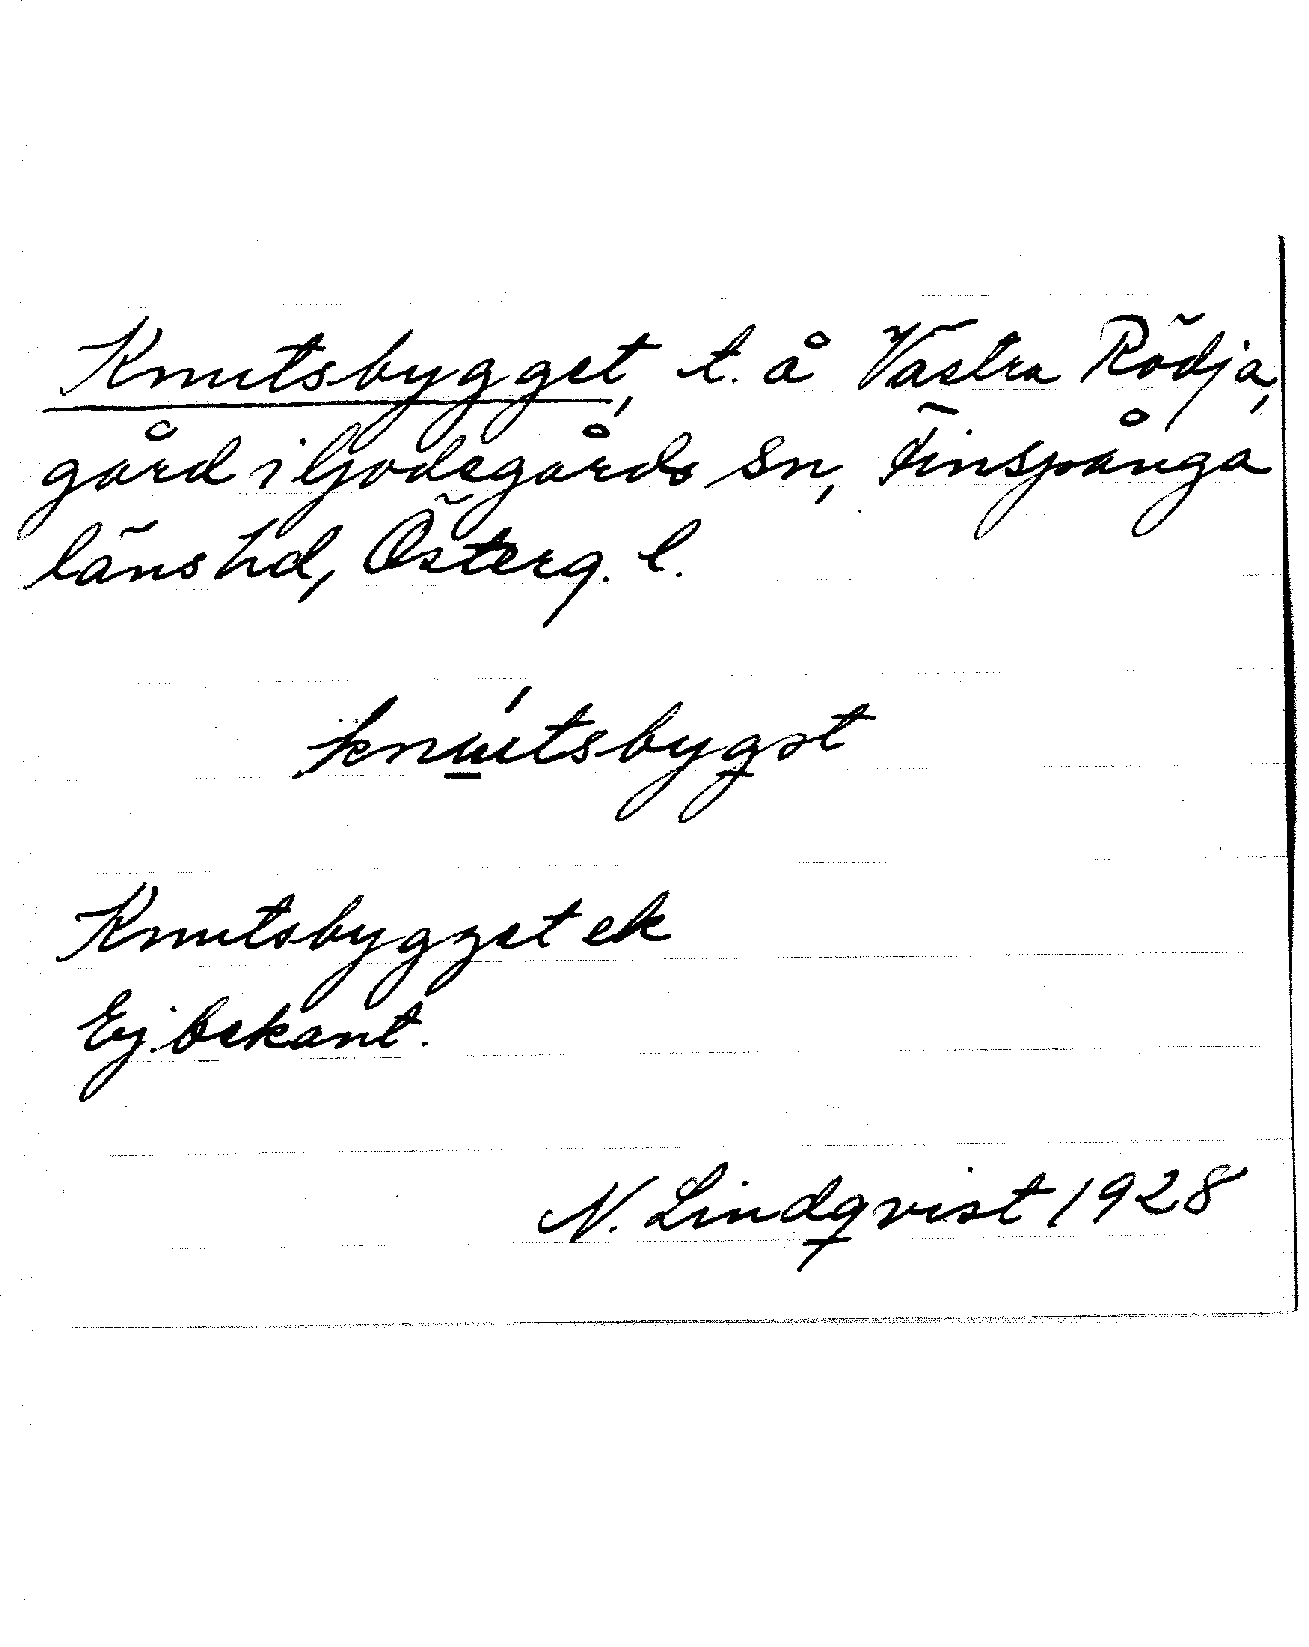 Knutsbygget, t. å Västra Rödja,
gård i Godegårds sn, Finspånga
läns hd, Österg. l.
knú̲tsbygət
Knutsbygget ek
Ej bekant.
N. Lindqvist 1928